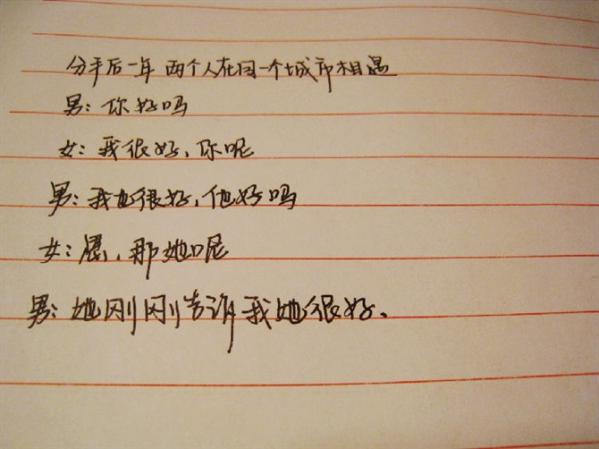 分手后一年 两个人在同一个城市相遇
男：你好吗
女：我很好，你呢
男：我也很好，他好吗
女：恩，那她呢
男：她刚刚告诉我她很好.